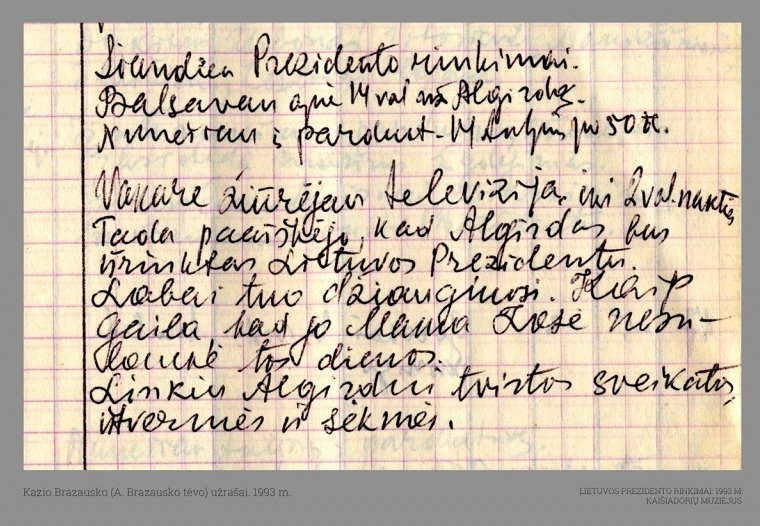 Šiandien Prezidento rinkimai.
Balsavau apie 14 val už Algirdą.
Nunešiau į parduot. 14 tulpių po 50 
Vakare žiūrėjau televiziją iki 2 val. nakties
Tada paaiškėjo, kad Algirdas bus
išrinktas Lietuvos Prezidentu.
Labai tuo džiaugiuosi. Kaip
gaila kad jo Mama Zosė nesu-
laukė tos dienos.
Linkiu Algirdui tvirtos sveikatos,
ištvermės ir sėkmės.
Kazio Brazausko (A. Brazausko tėvo) užrašai. 1993 m.
LIETUVOS PREZIDENTO RINKIMAI: 1993 M
KAIŠIADORIŲ MUZIEJUS